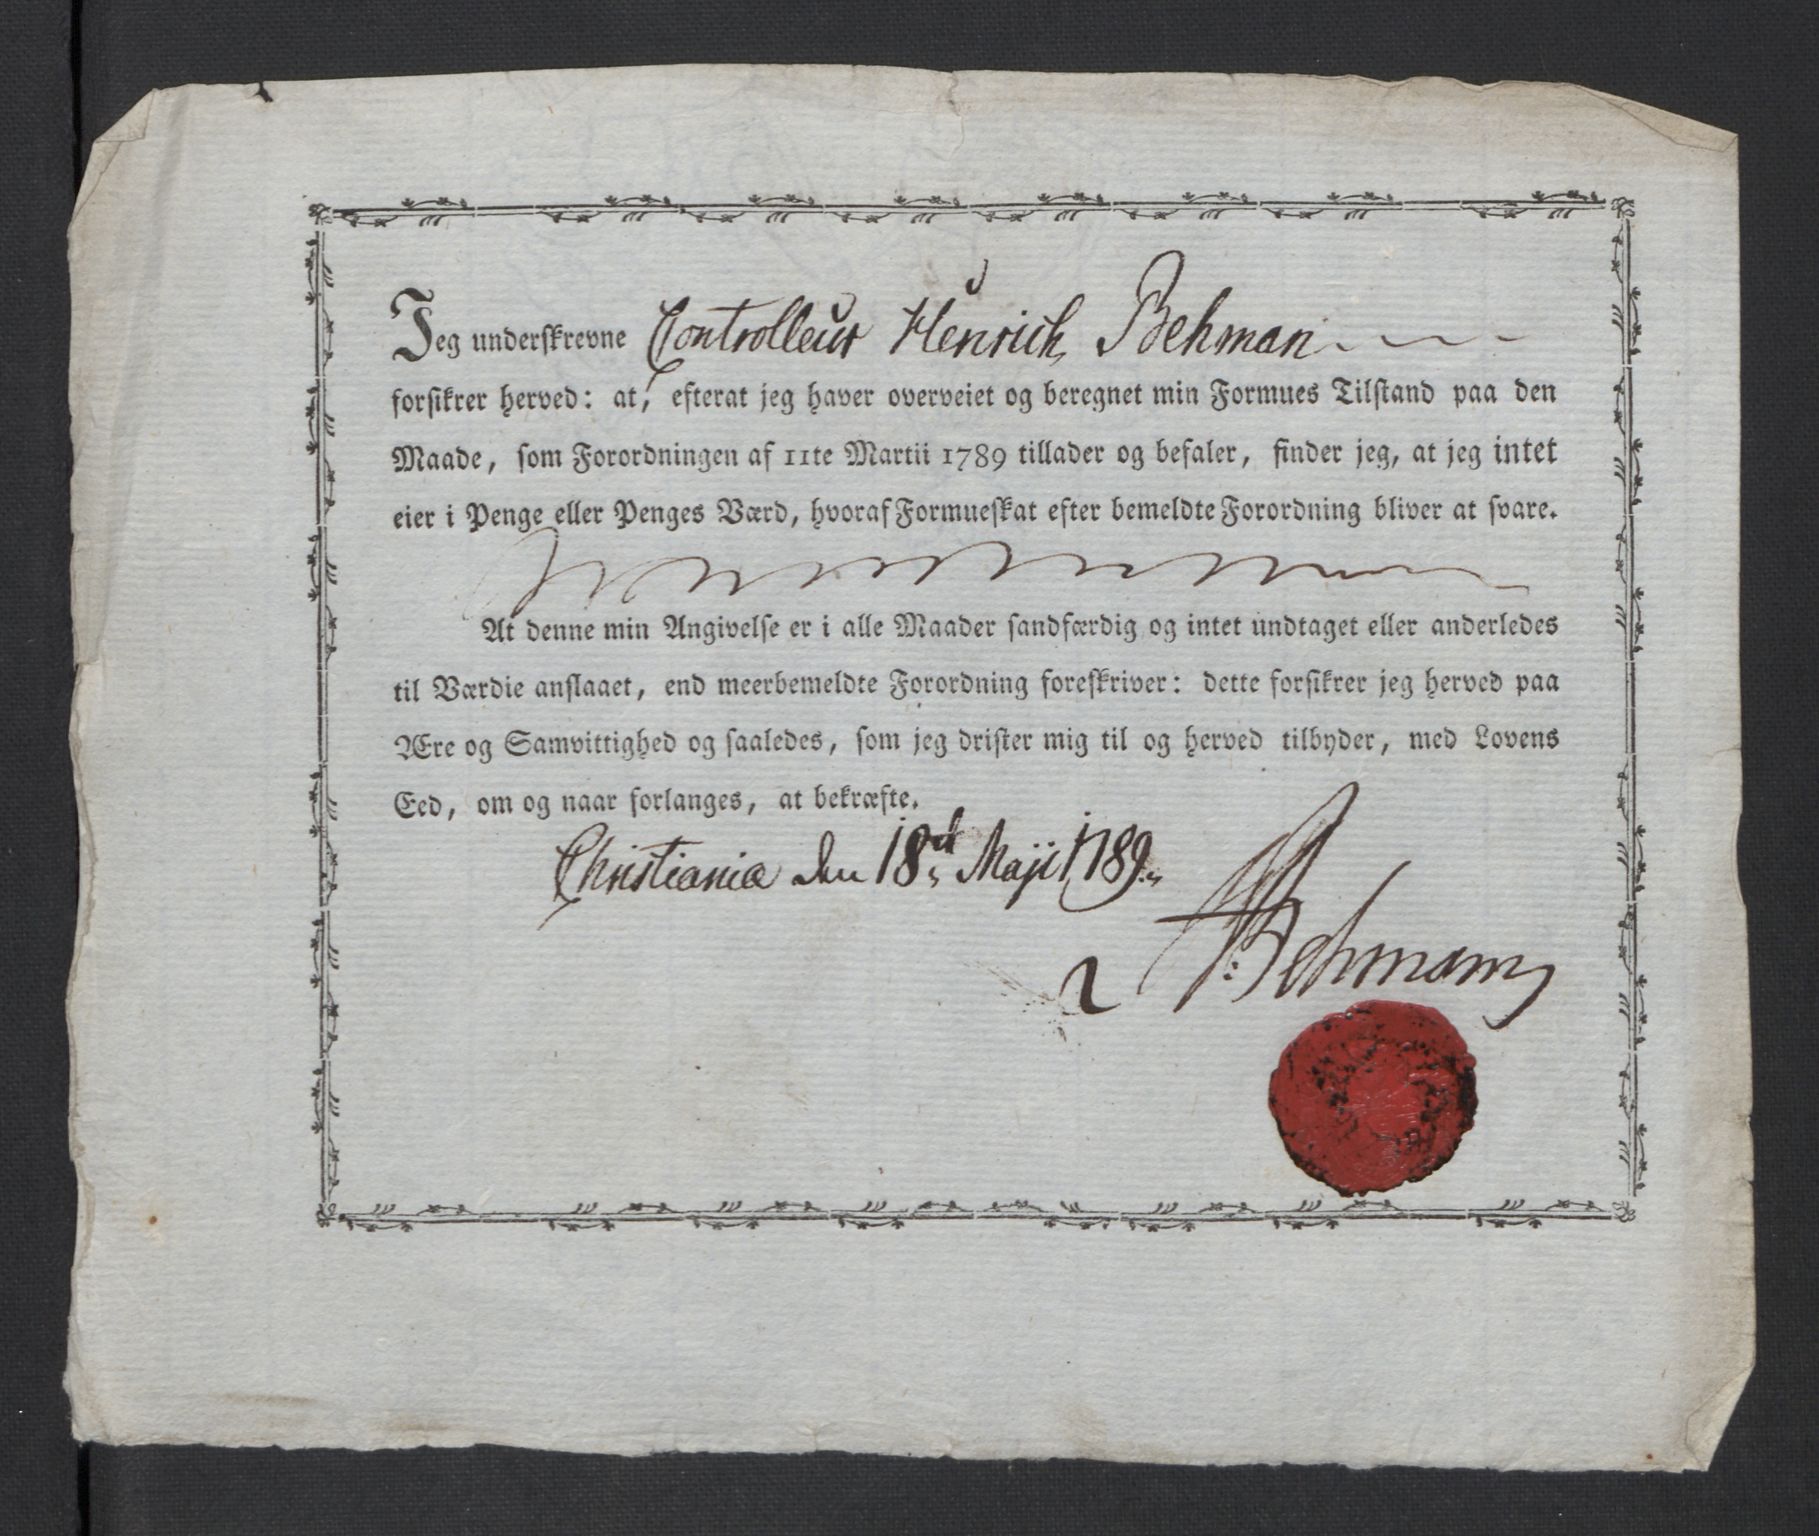 Jeg underskrevne Controlleur Henrich Behman
forsikrer herved: at, efterat jeg haver overveiet og beregnet min Formues Tilstand paa den
Maade, som Forordningen af 11te Martii 1789 tillader og befaler, finder jeg, at jeg intet
eier i Penge eller Penges Værd, hvoraf Formueskat efter bemeldte Forordning bliver at svare.
At denne min Angivelse er i alle Maader sandfærdig og intet undtaget eller anderledes
til Værdie anslaaet, end meerbemeldte Forordning foreskriver: dette forsikrer jeg herved paa
Ære og Samvittighed og saaledes, som jeg drister mig til og herved tilbyder, med Lovens
Eed, om og naar forlanges, at bekræfte.
Christiania den 18d Maji 1789.
H: Behmann